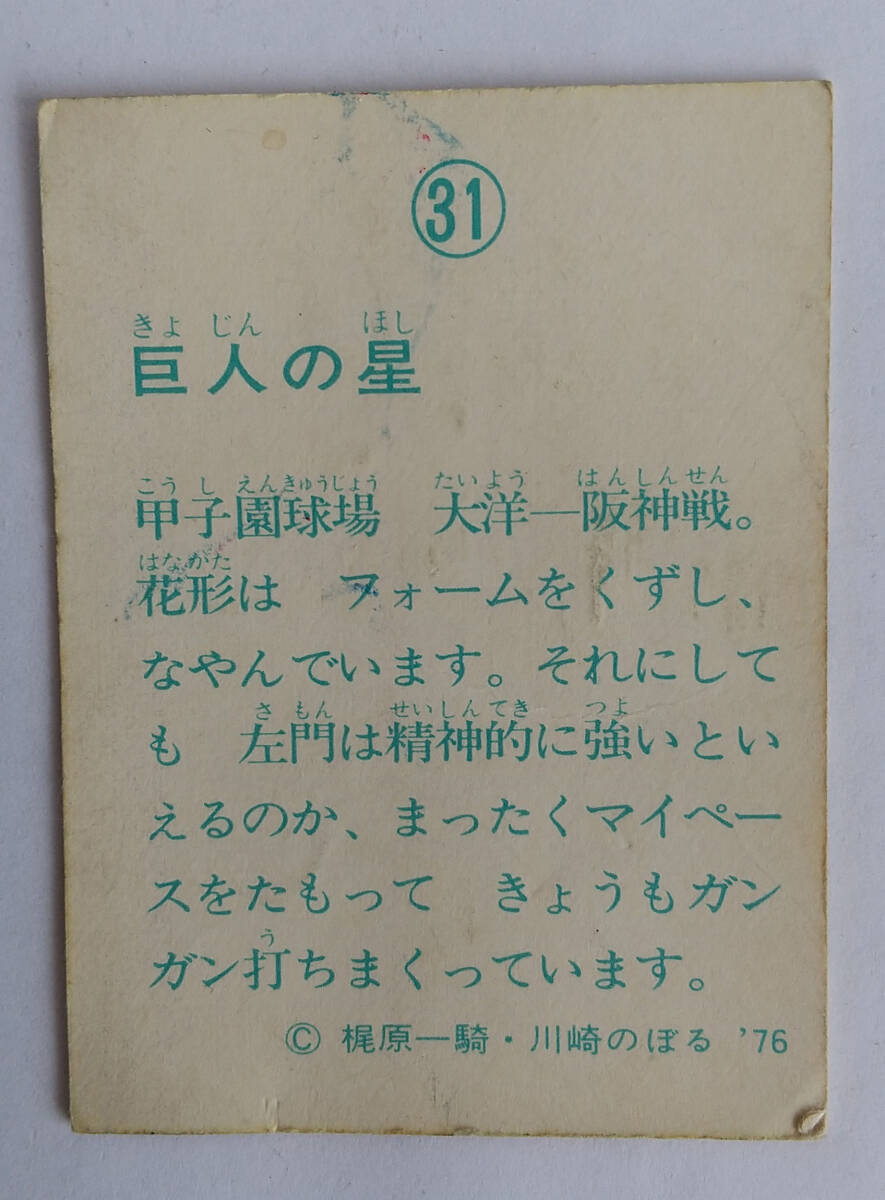 31
きょ じん ほし
巨人の星
こう し えんきゅうじょう たいよう はんしんせん
甲子園球場 大洋―阪神戦。
はながた
花形は フォームをくずし、
なやんでいます。それにして
さ もん せいしんてき つよ
も 左門は精神的に強いとい
えるのか、まったくマイペー
スをたもって きょうもガン
う
ガン打ちまくっています。
© 梶原一騎・川崎のぼる '76